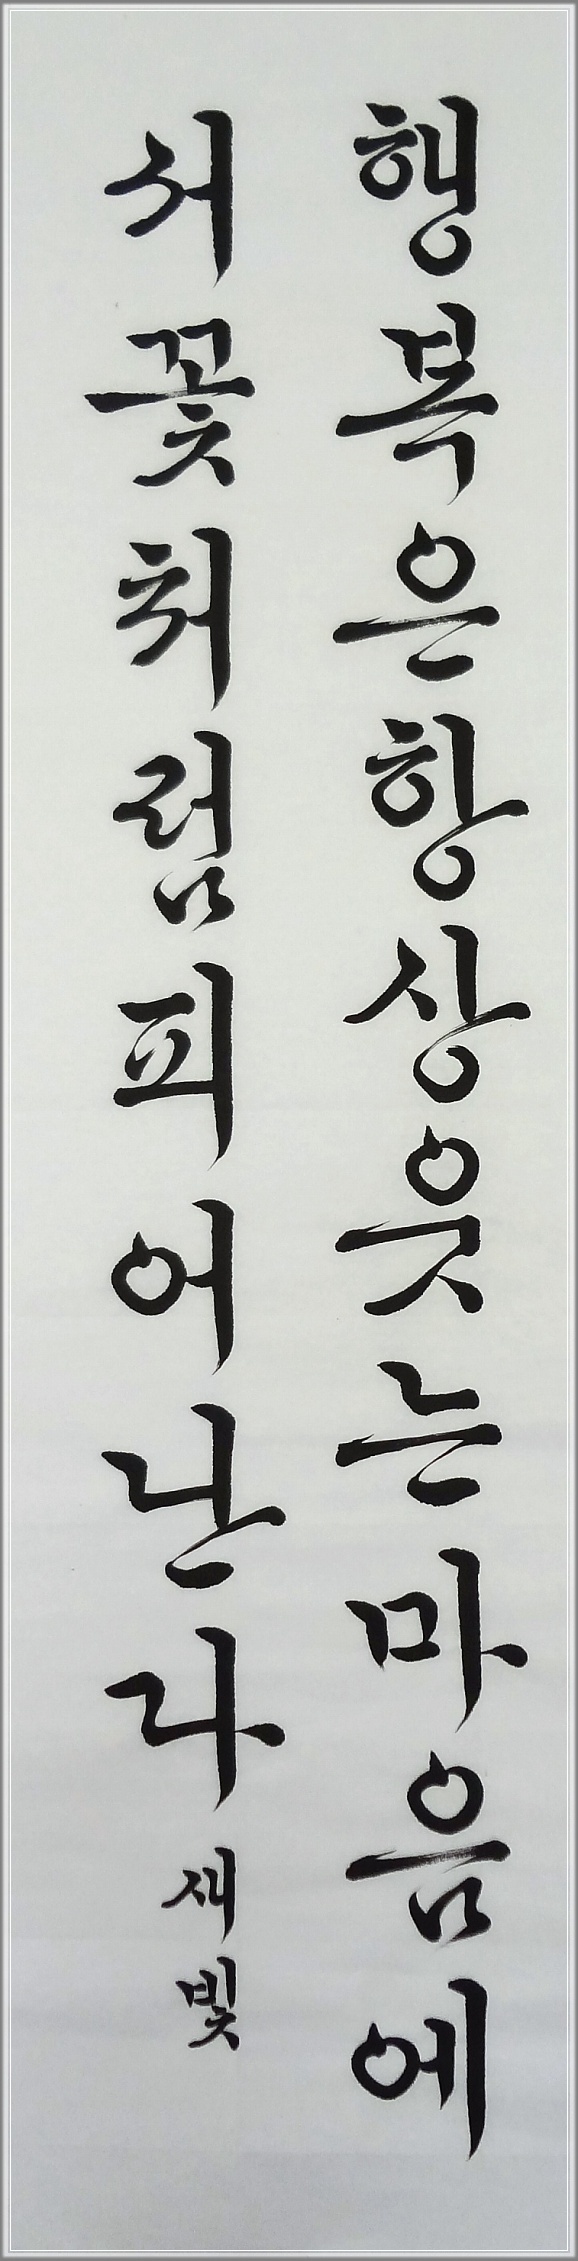 행복은항상웃는마음에
서꽃처럼피어난다
새빛